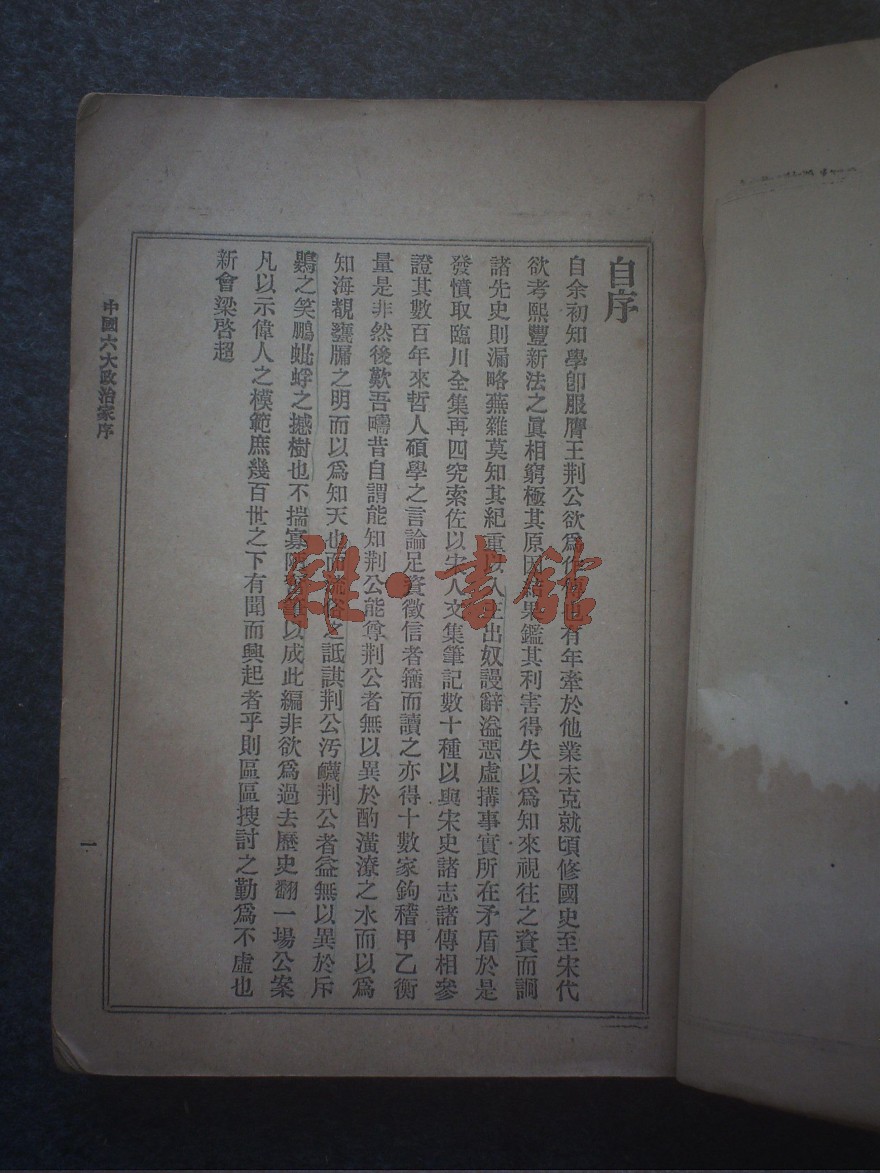 自序
自余初知學卽服膺王荆公欲爲作傳也有年牽於他業未克就頃修國史至宋代
欲考熙豐新法之眞相窮極其原因結果鑑其利害得失以爲知來視往之資而詗
諸先史則漏略蕪雜莫知其紀重以入主出奴謾辭溢惡虛搆事實所在矛盾於是
發憤取臨川全集再四究索佐以宋人文集筆記數十種以與宋史諸志諸傳相參
證其數百年來哲人碩學之言論足資徵信者籀而讀之亦得十數家鉤稽甲乙衡
量是非然後歎吾疇昔自謂能知荆公能尊荆公者無以異於酌潢潦之水而以爲
知海覩甕牖之明而以爲知天也而流俗之詆諆荆公汚衊荆公者益無以異於斥
鷃之笑鵬蚍蜉之撼樹也不揣寡陋以成此編非欲爲過去歷史翻一場公案
凡以示偉人之模範庶幾百世之下有聞而興起者乎則區區搜討之勤爲不虛也
新會梁啓超
中國六大政治家序
一
雜·書館